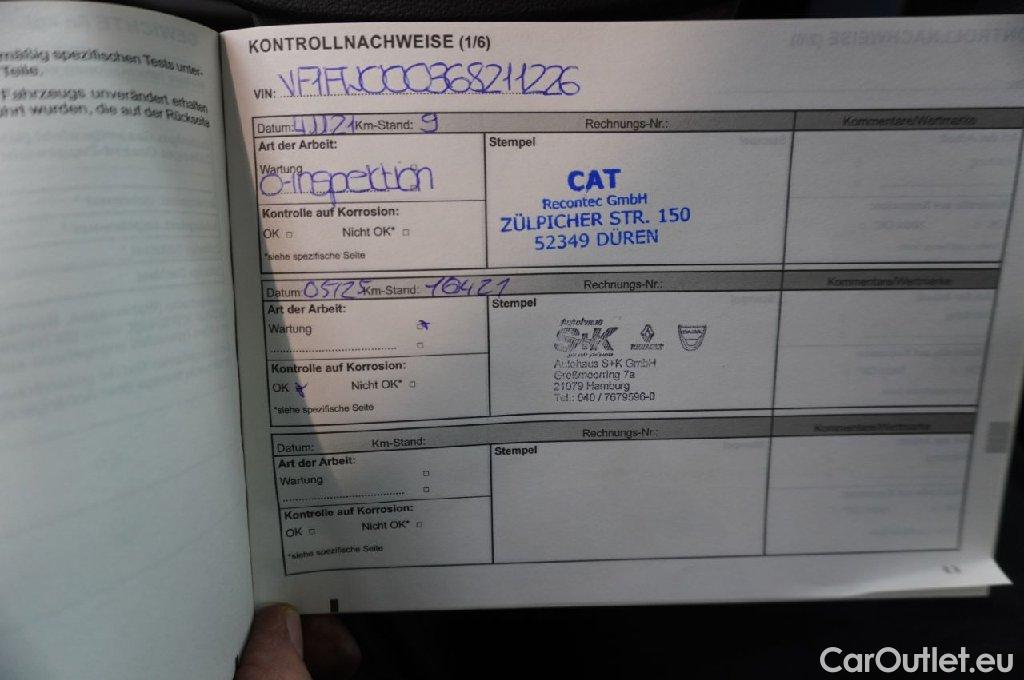 mäßig spezifischen Tests unter-
Teile.
Fahrzeugs unverändert erhalten
hrt wurden, die auf der Rückseite
KONTROLLNACHWEISE (1/6)
VIN: VF1FW000368211226
Datum: Km-Stand: 9 Rechnungs-Nr.: Kommentare/Wertmarke
Art der Arbeit: Stempel
Wartung
0-Inspektion
Kontrolle auf Korrosion:
OK □ Nicht OK* □
*siehe spezifische Seite
CAT
Recontec GmbH
ZÜLPICHER STR. 150
52349 DÜREN
Datum: 05/25 Km-Stand: 16421 Rechnungs-Nr.: Kommentare/Wertmarke
Art der Arbeit: Stempel
Wartung
Kontrolle auf Korrosion:
OK Nicht OK* □
*siehe spezifische Seite
Autohaus
S+K
RENAULT DACIA
Autohaus S+K GmbH
Großmoorring 7a
21079 Hamburg
Tel.: 040 / 7679596-0
Datum: Km-Stand: Rechnungs-Nr.: Kommentare/Wertmarke
Art der Arbeit: Stempel
Wartung □
□
Kontrolle auf Korrosion:
OK □ Nicht OK* □
*siehe spezifische Seite
CarOutlet.eu